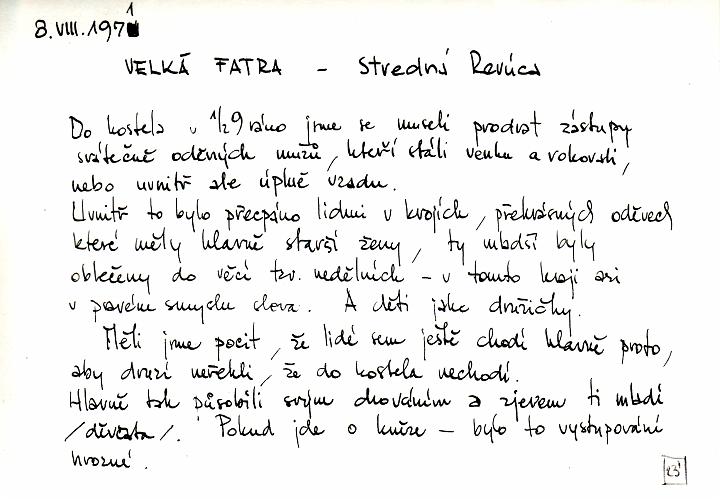 8.VIII.1971
VELKÁ FATRA – Stredná Revúca
Do kostela v 1/2 9 ráno jsme se museli prodrat zástupy
svátečně oděných mužů, kteří stáli venku a rokovali,
nebo uvnitř ale úplně vzadu.
Uvnitř to bylo přecpáno lidmi v krojích, překrásných oděvech
které měly hlavně starší ženy, ty mladší byly
oblečeny do věcí tzv. nedělních – v tomto kraji asi
v pravém smyslu slova. A děti jako družičky.
Měli jsme pocit, že lidé sem ještě chodí hlavně proto,
aby druzí neřekli, že do kostela nechodí.
Hlavně tak působili svým chováním a zjevem ti mladí
/děvčata/. Pokud jde o kněze – bylo to vystupování
hrozné.
23